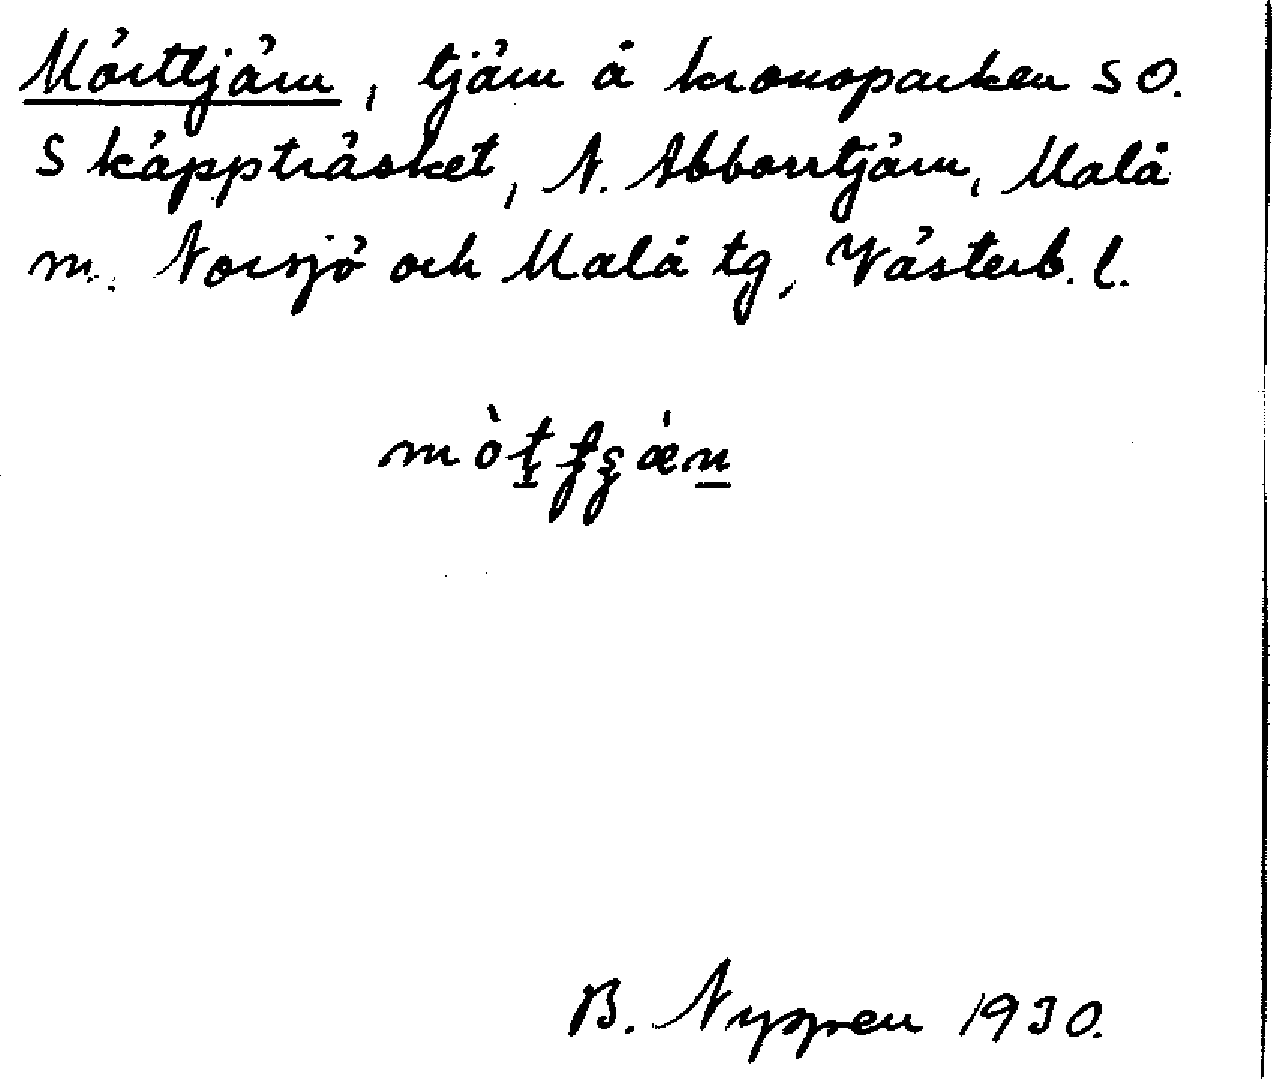 Mörttjärn, tjärn å kronoparken SO.
Skäppträsket, N. Abborrtjärn, Malå
m. Norsjö och Malå tg, Västerb. l.
B. Nyppen 1930.